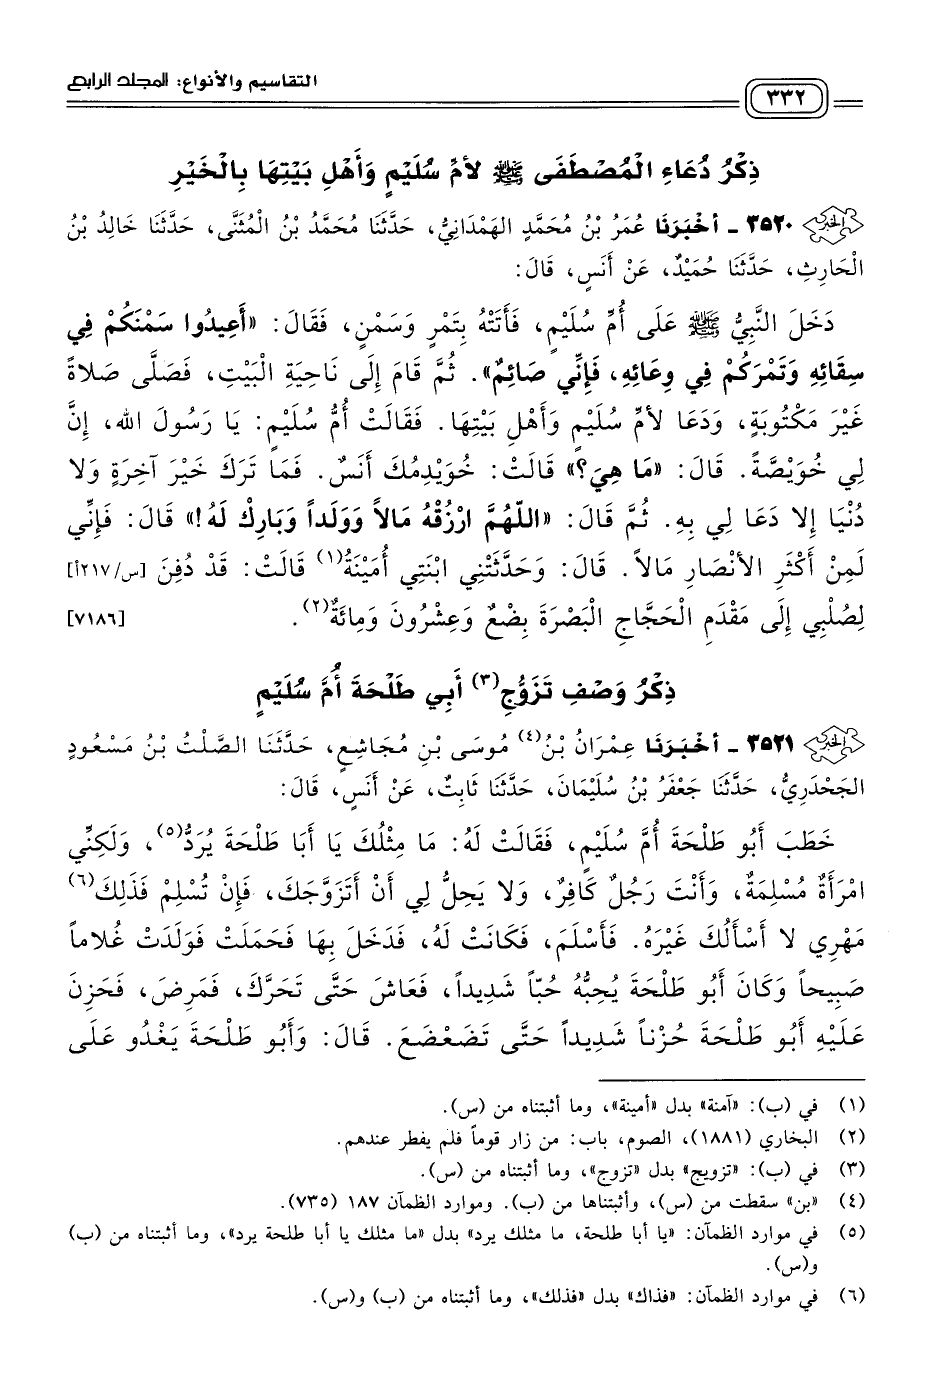 ٣٣٢ التقاسيم والأنواع: المجلد الرابع
ذِكْرُ دُعَاءِ الْمُصْطَفَى ﷺ لأمِّ سُلَيْمٍ وَأَهْلِ بَيْتِهَا بِالْخَيْرِ
الخبر ٣٥٢٠ ـ أخْبَرَنَا عُمَرُ بْنُ مُحَمَّدٍ الهَمْدَانِيُّ، حَدَّثَنَا مُحَمَّدُ بْنُ الْمُثَنَّى، حَدَّثَنَا خَالِدُ بْنُ
الْحَارِثِ، حَدَّثَنَا حُمَيْدٌ، عَنْ أَنَسٍ، قَالَ:
دَخَلَ النَّبِيُّ ﷺ عَلَى أُمِّ سُلَيْمٍ، فَأَتَتْهُ بِتَمْرٍ وَسَمْنٍ، فَقَالَ: «أَعِيدُوا سَمْنَكُمْ فِي
سِقَائِهِ وَتَمْرَكُمْ فِي وِعَائِهِ، فَإِنِّي صَائِمٌ». ثُمَّ قَامَ إِلَى نَاحِيَةِ الْبَيْتِ، فَصَلَّى صَلاةً
غَيْرَ مَكْتُوبَةٍ، وَدَعَا لأمِّ سُلَيْمٍ وَأَهْلِ بَيْتِهَا. فَقَالَتْ أُمُّ سُلَيْمٍ: يَا رَسُولَ الله، إِنَّ
لِي خُوَيْصَّةً. قَالَ: «مَا هِيَ؟» قَالَتْ: خُوَيْدِمُكَ أَنَسٌ. فَمَا تَرَكَ خَيْرَ آخِرَةٍ وَلا
دُنْيَا إِلا دَعَا لِي بِهِ. ثُمَّ قَالَ: «اللّهُمَّ ارْزُقْهُ مَالاً وَوَلَداً وَبَارِكْ لَهُ!» قَالَ: فَإِنِّي
لَمِنْ أَكْثَرِ الأنْصَارِ مَالاً. قَالَ: وَحَدَّثَتْنِي ابْنَتِي أُمَيْنَةُ(١) قَالَتْ: قَدْ دُفِنَ [س/٢١٧أ]
لِصُلْبِي إِلَى مَقْدَمِ الْحَجَّاجِ الْبَصْرَةَ بِضْعٌ وَعِشْرُونَ وَمِائَةٌ(٢). [٧١٨٦]
ذِكْرُ وَصْفِ تَزَوُّجِ(٣) أَبِي طَلْحَةَ أُمَّ سُلَيْمٍ
الخبر ٣٥٢١ ـ أخْبَرَنَا عِمْرَانُ بْنُ(٤) مُوسَى بْنِ مُجَاشِعٍ، حَدَّثَنَا الصَّلْتُ بْنُ مَسْعُودٍ
الجَحْدَرِيُّ، حَدَّثَنَا جَعْفَرُ بْنُ سُلَيْمَانَ، حَدَّثَنَا ثَابِتٌ، عَنْ أَنَسٍ، قَالَ:
خَطَبَ أَبُو طَلْحَةَ أُمَّ سُلَيْمٍ، فَقَالَتْ لَهُ: مَا مِثْلُكَ يَا أَبَا طَلْحَةَ يُرَدُّ(٥)، وَلَكِنِّي
امْرَأَةٌ مُسْلِمَةٌ، وَأَنْتَ رَجُلٌ كَافِرٌ، وَلا يَحِلُّ لِي أَنْ أَتَزَوَّجَكَ، فَإِنْ تُسْلِمْ فَذَلِكَ(٦)
مَهْرِي لا أَسْأَلُكَ غَيْرَهُ. فَأَسْلَمَ، فَكَانَتْ لَهُ، فَدَخَلَ بِهَا فَحَمَلَتْ فَوَلَدَتْ غُلاماً
صَبِيحاً وَكَانَ أَبُو طَلْحَةَ يُحِبُّهُ حُبّاً شَدِيداً، فَعَاشَ حَتَّى تَحَرَّكَ، فَمَرِضَ، فَحَزِنَ
عَلَيْهِ أَبُو طَلْحَةَ حُزْناً شَدِيداً حَتَّى تَضَعْضَعَ. قَالَ: وَأَبُو طَلْحَةَ يَغْدُو عَلَى
(١) في (ب): «آمنة» بدل «أمينة»، وما أثبتناه من (س).
(٢) البخاري (١٨٨١)، الصوم، باب: من زار قوماً فلم يفطر عندهم.
(٣) في (ب): «تزويج» بدل «تزوج»، وما أثبتناه من (س).
(٤) «بن» سقطت من (س)، وأثبتناها من (ب). وموارد الظمآن ١٨٧ (٧٣٥).
(٥) في موارد الظمآن: «يا أبا طلحة، ما مثلك يرد» بدل «ما مثلك يا أبا طلحة يرد»، وما أثبتناه من (ب)
و(س).
(٦) في موارد الظمآن: «فذاك» بدل «فذلك»، وما أثبتناه من (ب) و(س).